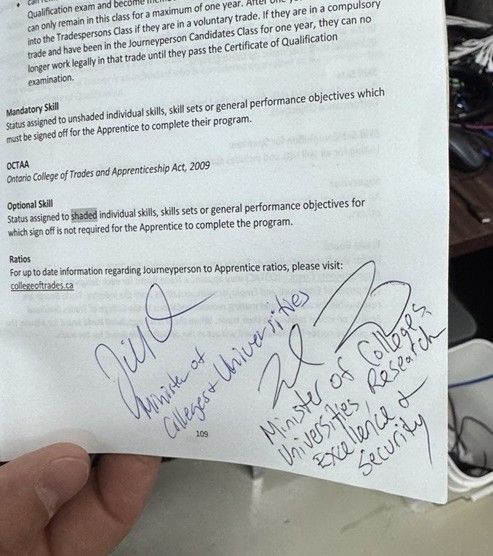 Qualification exam and become
can only remain in this class for a maximum of one year. After one
into the Tradespersons Class if they are in a voluntary trade. If they are in a compulsory
trade and have been in the Journeyperson Candidates Class for one year, they can no
longer work legally in that trade until they pass the Certificate of Qualification
examination.
Mandatory Skill
Status assigned to unshaded individual skills, skill sets or general performance objectives which
must be signed off for the Apprentice to complete their program.
OCTAA
Ontario College of Trades and Apprenticeship Act, 2009
Optional Skill
Status assigned to shaded individual skills, skills sets or general performance objectives for
which sign off is not required for the Apprentice to complete the program.
Ratios
For up to date information regarding Journeyperson to Apprentice ratios, please visit:
collegeoftrades.ca
Minister of
Colleges & Universities
Minister of Colleges,
Universities Research
Excellence &
Security
109